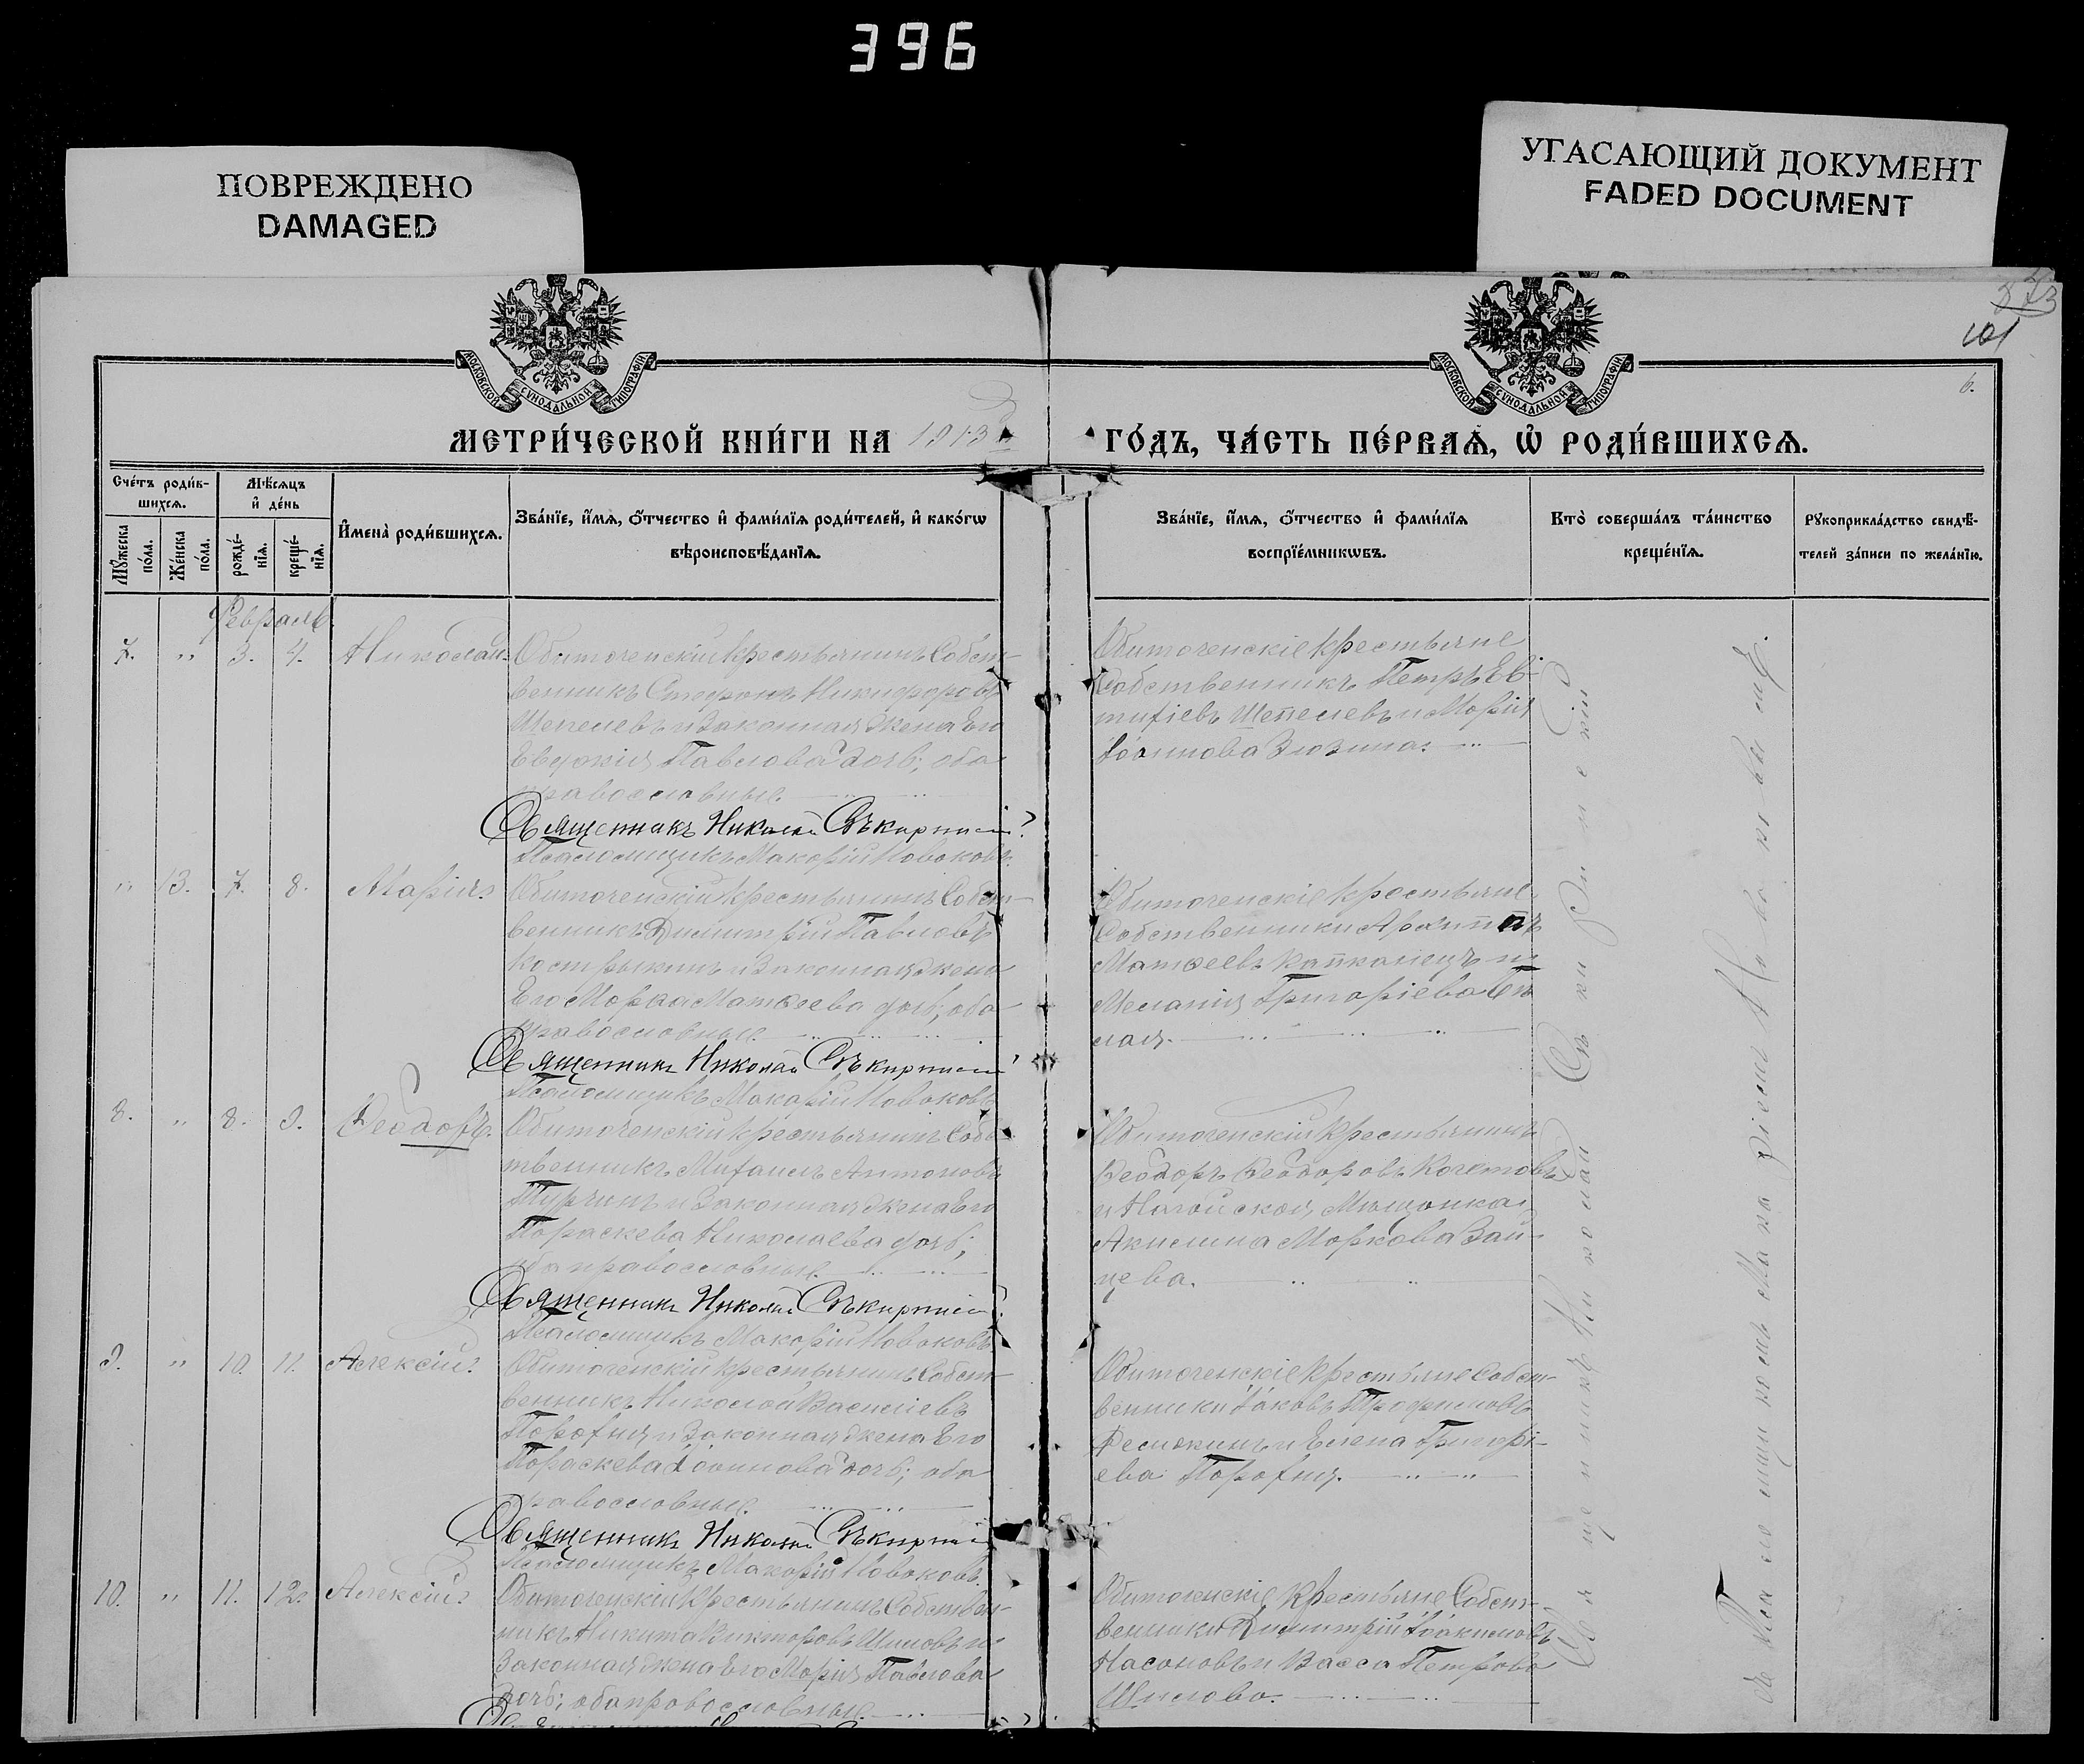 396
ПОВРЕЖДЕНО
DAMAGED
УГАСАЮЩИЙ ДОКУМЕНТ
FADED DOCUMENT
101
6.
МОСКОВСКОЙ СѴНОДАЛЬНОЙ ТИПОГРАФІИ
МОСКОВСКОЙ СѴНОДАЛЬНОЙ ТИПОГРАФІИ
МЕТРИ́ЧЕСКОЙ КНИ́ГИ НА 1913
ГО́ДЪ, ЧА́СТЬ ПЕ́РВАЯ, Ѡ҆ РОДИ́ВШИХСЯ.
Сче́тъ роди́в-
шихся.
Мѣ́сяцъ
и҆ де́нь
Мꙋ́жеска
по́ла.
Же́нска
по́ла.
рожде́-
нїя.
креще́-
нїя.
И҆мена̀ роди́вшихся.
Зва́нїе, и҆́мя, ѻ҆́тчество и҆ фами́лїя роди́телей, и҆ како́гѡ
вѣроисповѣ́данїя.
Зва́нїе, и҆́мя, ѻ҆́тчество и҆ фами́лїя
воспрїе́мникѡвъ.
Кто̀ соверша́лъ та́инство
креще́нїя.
Рꙋкоприкла́дство свидѣ́-
телей за́писи по жела́нїю.
Февраль.
7. " 3. 4. Николай. Обиточенскій крестьянинъ Собст-
венникъ Стефанъ Никифоровъ
Шепелевъ и Законная Жена Его
Евдокия Павлова дочь; оба
православные.
Священникъ Николай
Псаломщикъ Макарій Новаковъ.
Обиточенскіе крестьяне
Собственникъ Петръ Ев-
тихіевъ Шепелевъ и Марія
Іоаннова Зюзина.
" 13. 7. 8. Марія. Обиточенскій крестьянинъ Собст-
венникъ Димитрій Павловъ
Кострыкинъ и Законная жена
Его Марѳа Матѳеева дочь; оба
православные.
Священникъ Николай
Псаломщикъ Макарій Новаковъ
Обиточенскіе крестьяне
Собственники Архиппъ
Матѳеевъ и
Меланія Григоріева
лая.
8. " 8. 9. Ѳеодоръ. Обиточенскій крестьянинъ Собс-
твенникъ Михаилъ Антоновъ
и Законная жена Его
Параскева Николаева дочь;
оба православные.
Священникъ Николай
Псаломщикъ Макарій Новаковъ
Обиточенскій крестьянинъ
Ѳеодоръ Ѳеодоровъ Кочетовъ
и Ногайская Мѣщанка
Акилина Маркова Зай-
цева.
9. " 10. 11. Алексій. Обиточенскій крестьянинъ Собст-
венникъ Николай Василіевъ
и Законная жена Его
Параскева Іоаннова дочь; оба
православные.
Священникъ Николай
Псаломщикъ Макарій Новаковъ.
Обиточенскіе крестьяне Собст-
венники Іаковъ Трофимовъ
и Елена Григорі-
ева
10. " 11. 12. Алексій. Обиточенскій крестьянинъ Собствен-
никъ Никита Викторовъ Шиловъ и
Законная жена Его Марія Павлова
дочь; оба православные.
Обиточенскіе крестьяне Собст-
венники Димитрій Іоакимовъ
Насоновъ и Васса Петрова
Шилова.
Священникъ Николай
Псаломщикъ Макарій Новаковъ